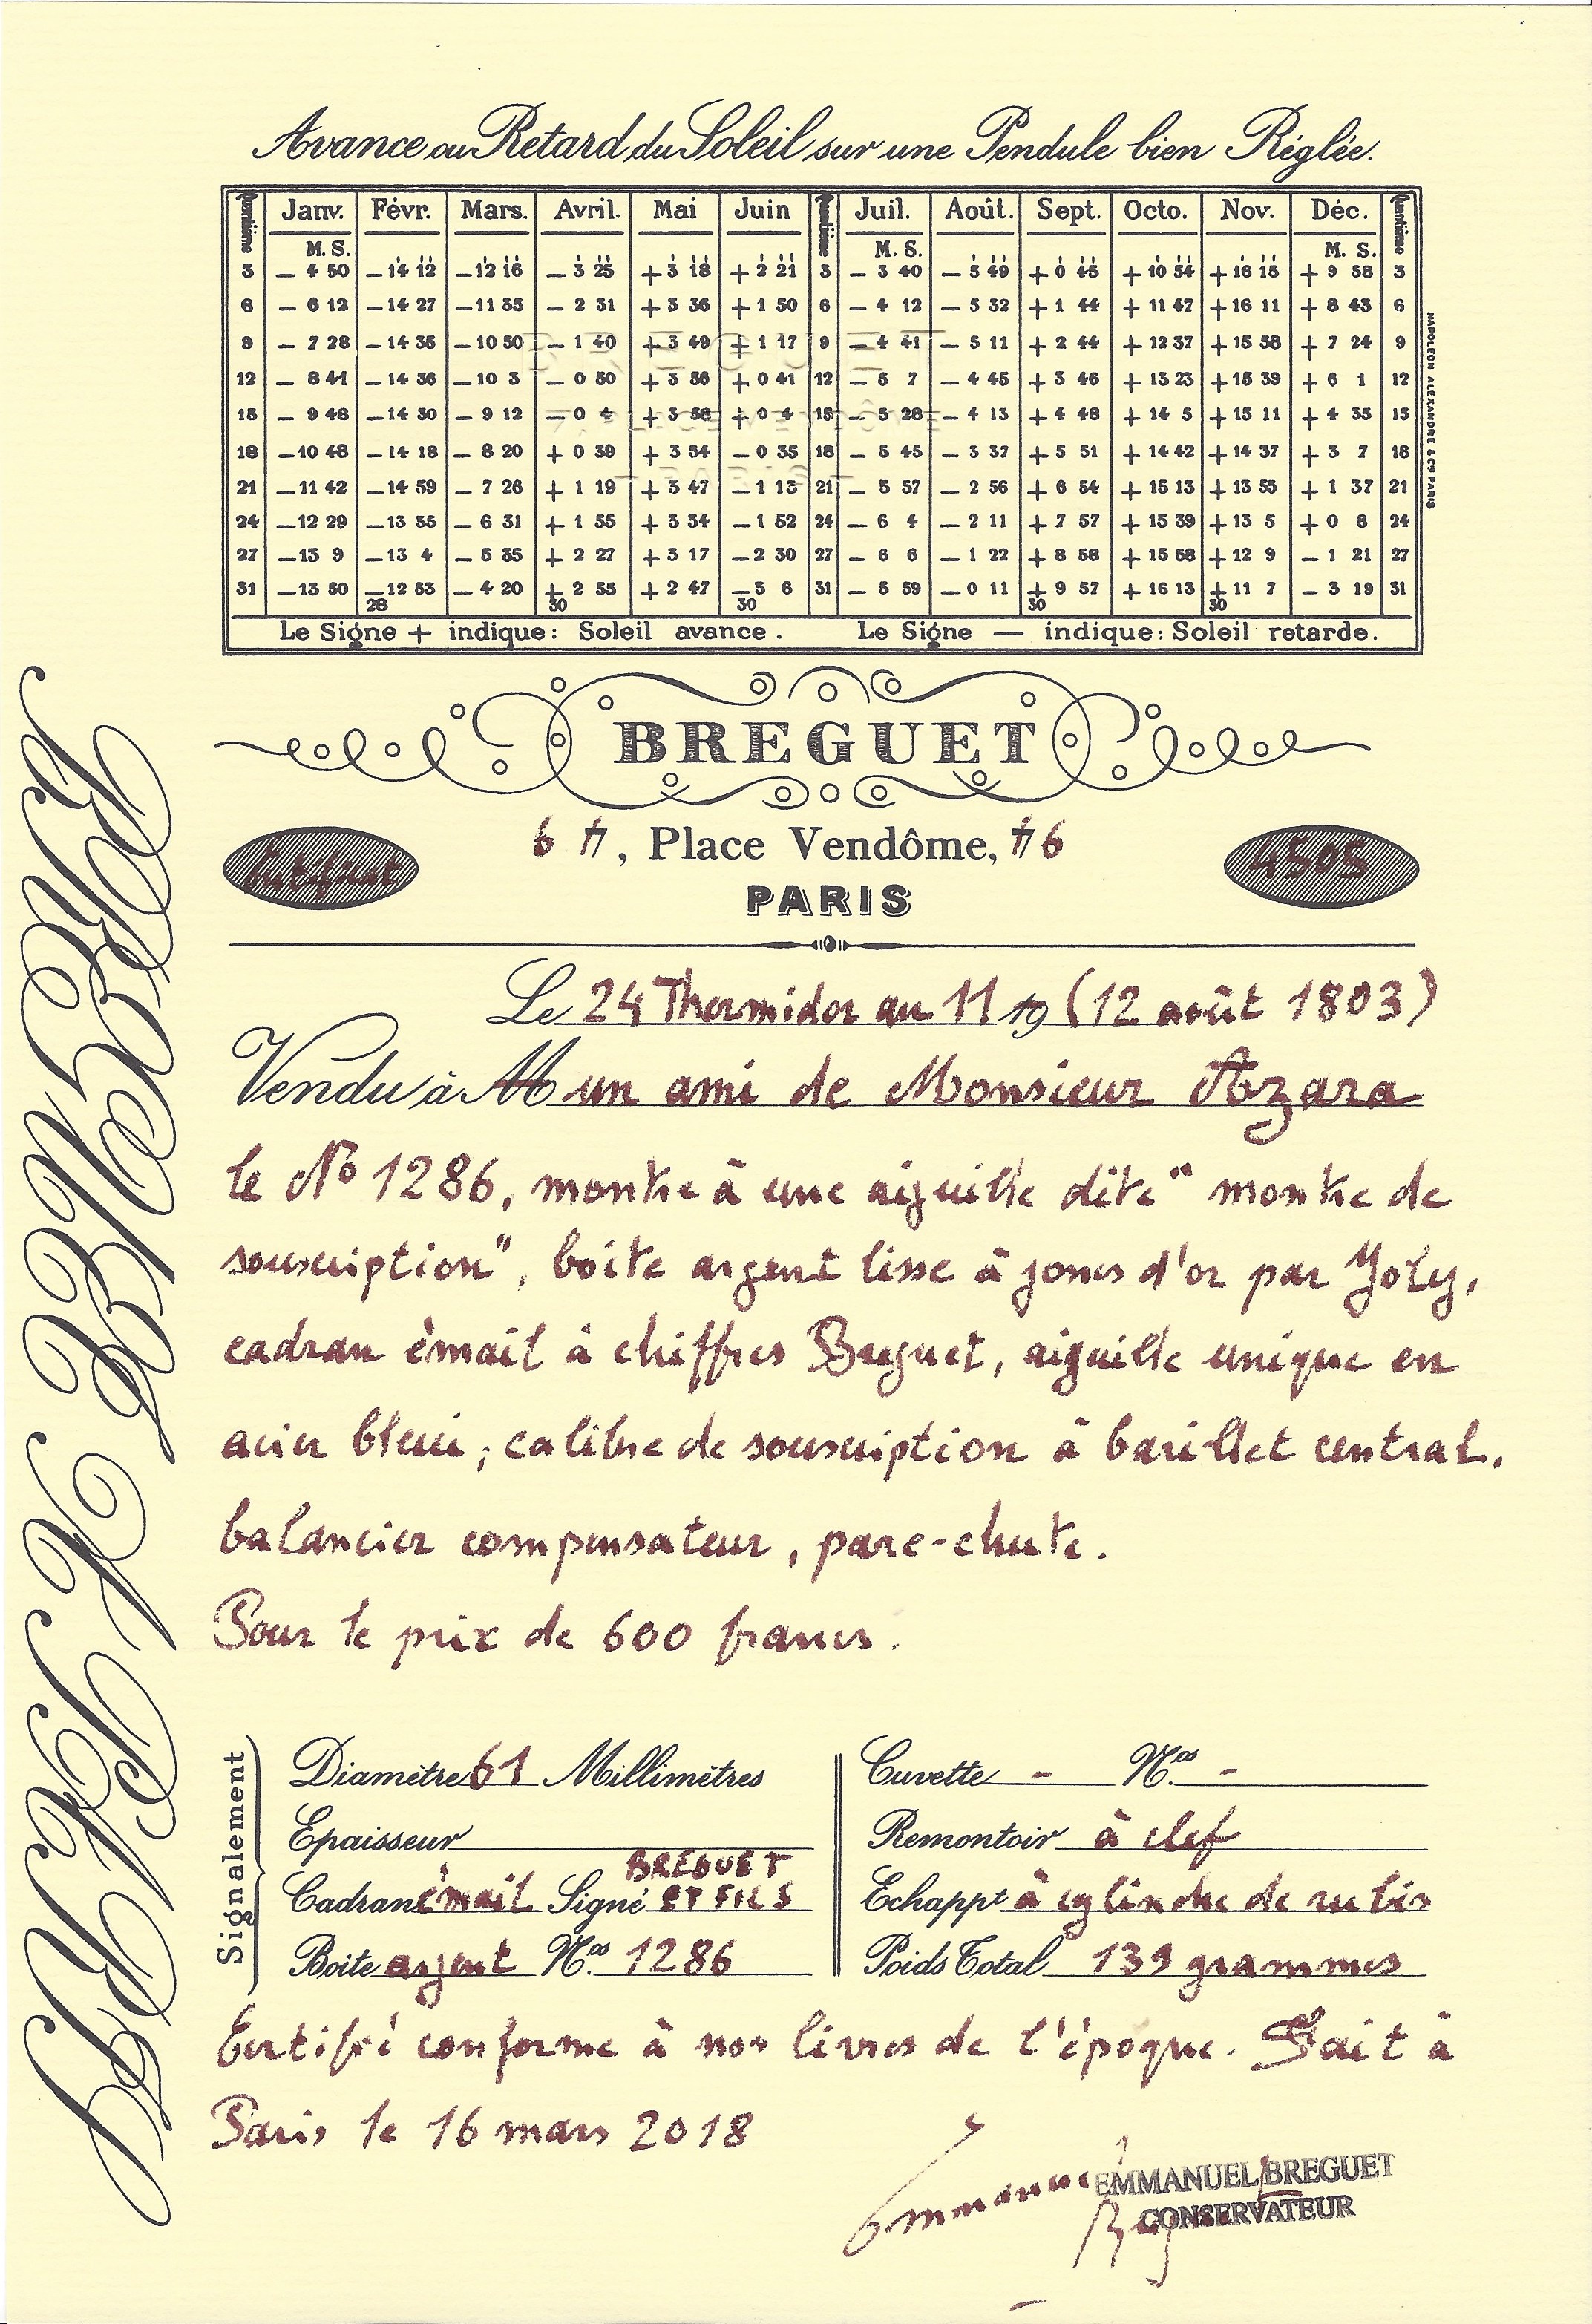 Avance ou Retard du Soleil sur une Pendule bien Réglée.
Quantième Janv. Févr. Mars. Avril. Mai Juin Quantième Juil. Août. Sept. Octo. Nov. Déc. Quantième
M. S. M. S. M. S.
3 — 4 50 — 14 12 — 12 16 — 3 25 + 3 18 + 2 21 3 — 3 40 — 5 49 + 0 45 + 10 54 + 16 15 + 9 58 3
6 — 6 12 — 14 27 — 11 35 — 2 31 + 3 36 + 1 50 6 — 4 12 — 5 32 + 1 44 + 11 47 + 16 11 + 8 43 6
9 — 7 28 — 14 35 — 10 50 — 1 40 + 3 49 + 1 17 9 — 4 41 — 5 11 + 2 44 + 12 37 + 15 58 + 7 24 9
12 — 8 41 — 14 36 — 10 3 — 0 50 + 3 56 + 0 41 12 — 5 7 — 4 45 + 3 46 + 13 23 + 15 39 + 6 1 12
15 — 9 48 — 14 30 — 9 12 — 0 4 + 3 58 + 0 4 15 — 5 28 — 4 13 + 4 48 + 14 5 + 15 11 + 4 35 15
18 — 10 48 — 14 18 — 8 20 + 0 39 + 3 54 — 0 35 18 — 5 45 — 3 37 + 5 51 + 14 42 + 14 37 + 3 7 18
21 — 11 42 — 14 59 — 7 26 + 1 19 + 3 47 — 1 13 21 — 5 57 — 2 56 + 6 54 + 15 13 + 13 55 + 1 37 21
24 — 12 29 — 13 35 — 6 31 + 1 55 + 3 34 — 1 52 24 — 6 4 — 2 11 + 7 57 + 15 39 + 13 5 + 0 8 24
27 — 13 9 — 13 4 — 5 35 + 2 27 + 3 17 — 2 30 27 — 6 6 — 1 22 + 8 58 + 15 58 + 12 9 — 1 21 27
31 — 13 50 — 12 53 — 4 20 + 2 55 + 2 47 — 3 6 31 — 5 59 — 0 11 + 9 57 + 16 13 + 11 7 — 3 19 31
28 30 30 30 30
Le Signe + indique: Soleil avance. Le Signe — indique: Soleil retarde.
NAPOLÉON ALEXANDRE & Cie PARIS
BREGUET
6 , Place Vendôme, 6
PARIS
Certificat
4505
Le 24 Thermidor an 11 19 (12 août 1803)
Vendu à M un ami de Monsieur Azara
le No 1286, montre à une aiguille dite "montre de
souscription", boite argent lisse à joncs d'or par Joly,
cadran émail à chiffres Breguet, aiguille unique en
acier bleui; calibre de souscription à barillet central,
balancier compensateur, pare-chute.
Pour le prix de 600 francs.
Signalement
Diamètre 61 Millimètres
Epaisseur
Cadran émail Signé BREGUET ET FILS
Boite argent Nos 1286
Cuvette - Nos -
Remontoir à clef
Echappt à cylindre de rubis
Poids Total 139 grammes
Certifié conforme à nos livres de l'époque. Fait à
Paris le 16 mars 2018
Emmanuel Breguet
EMMANUEL BREGUET
CONSERVATEUR